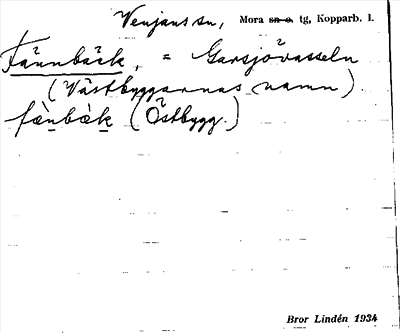 Venjans sn, Mora sn o. tg, Kopparb. l.
Fännbäck, = Garsjövasseln
(Västbyggarnas namn).
fænbæk (Östbygg.)
Bror Lindén 1934